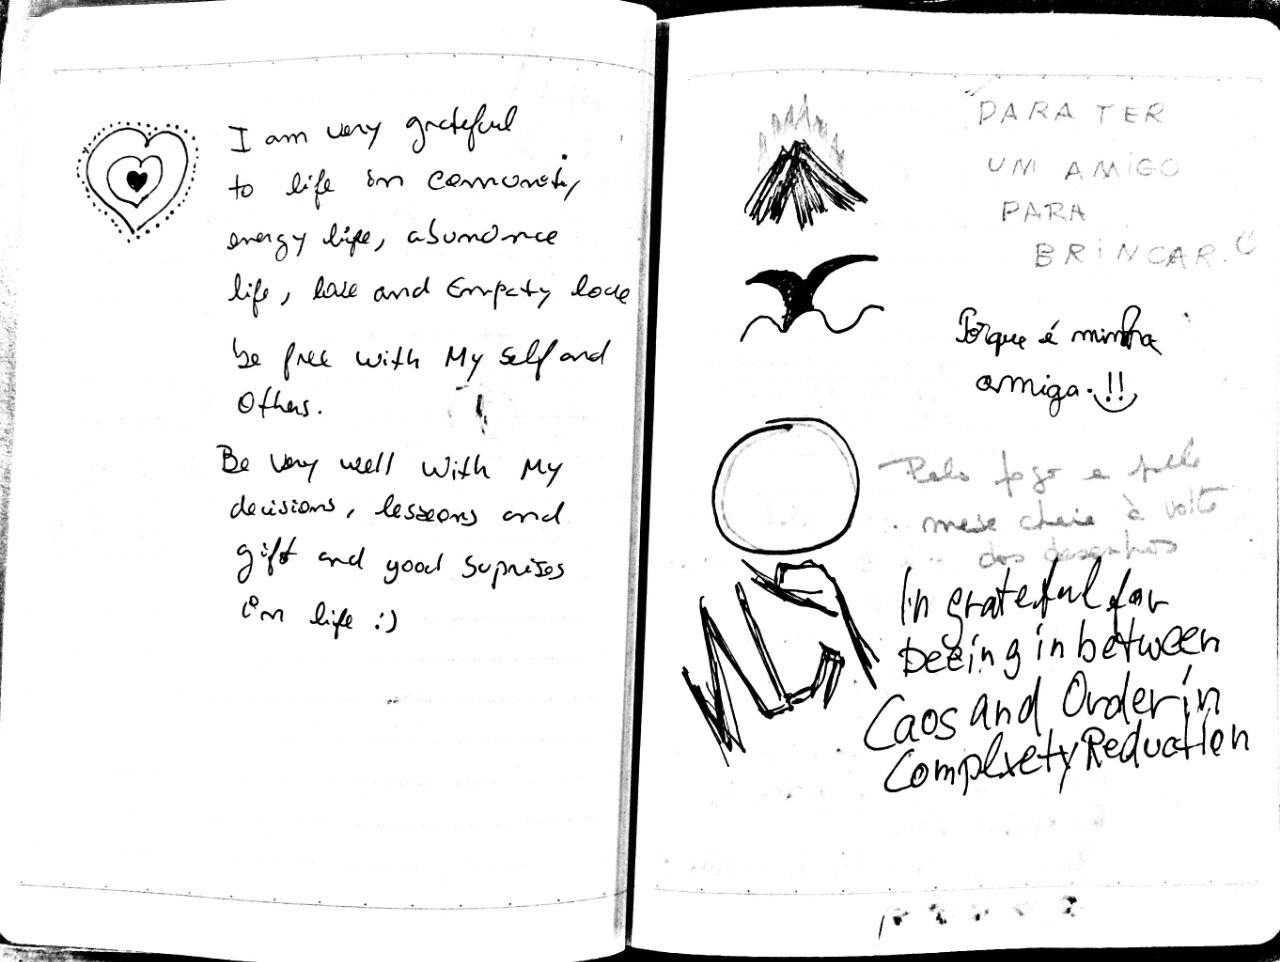 I am very grateful
to life in comunity
energy life, abundance
life, love and Empaty love
be free with My self and
Others.
Be very well with My
decisions, lessons and
gift and good suprises
in life :)
PARA TER
UM AMiGO
PARA
BRiNCAR.
Porque é minha
amiga.!!
Pelo fogo e pelle
mese cheie à volte
dos desenhos
In grateful for
beeing in between
Caos and Order in
Complxety Reduction